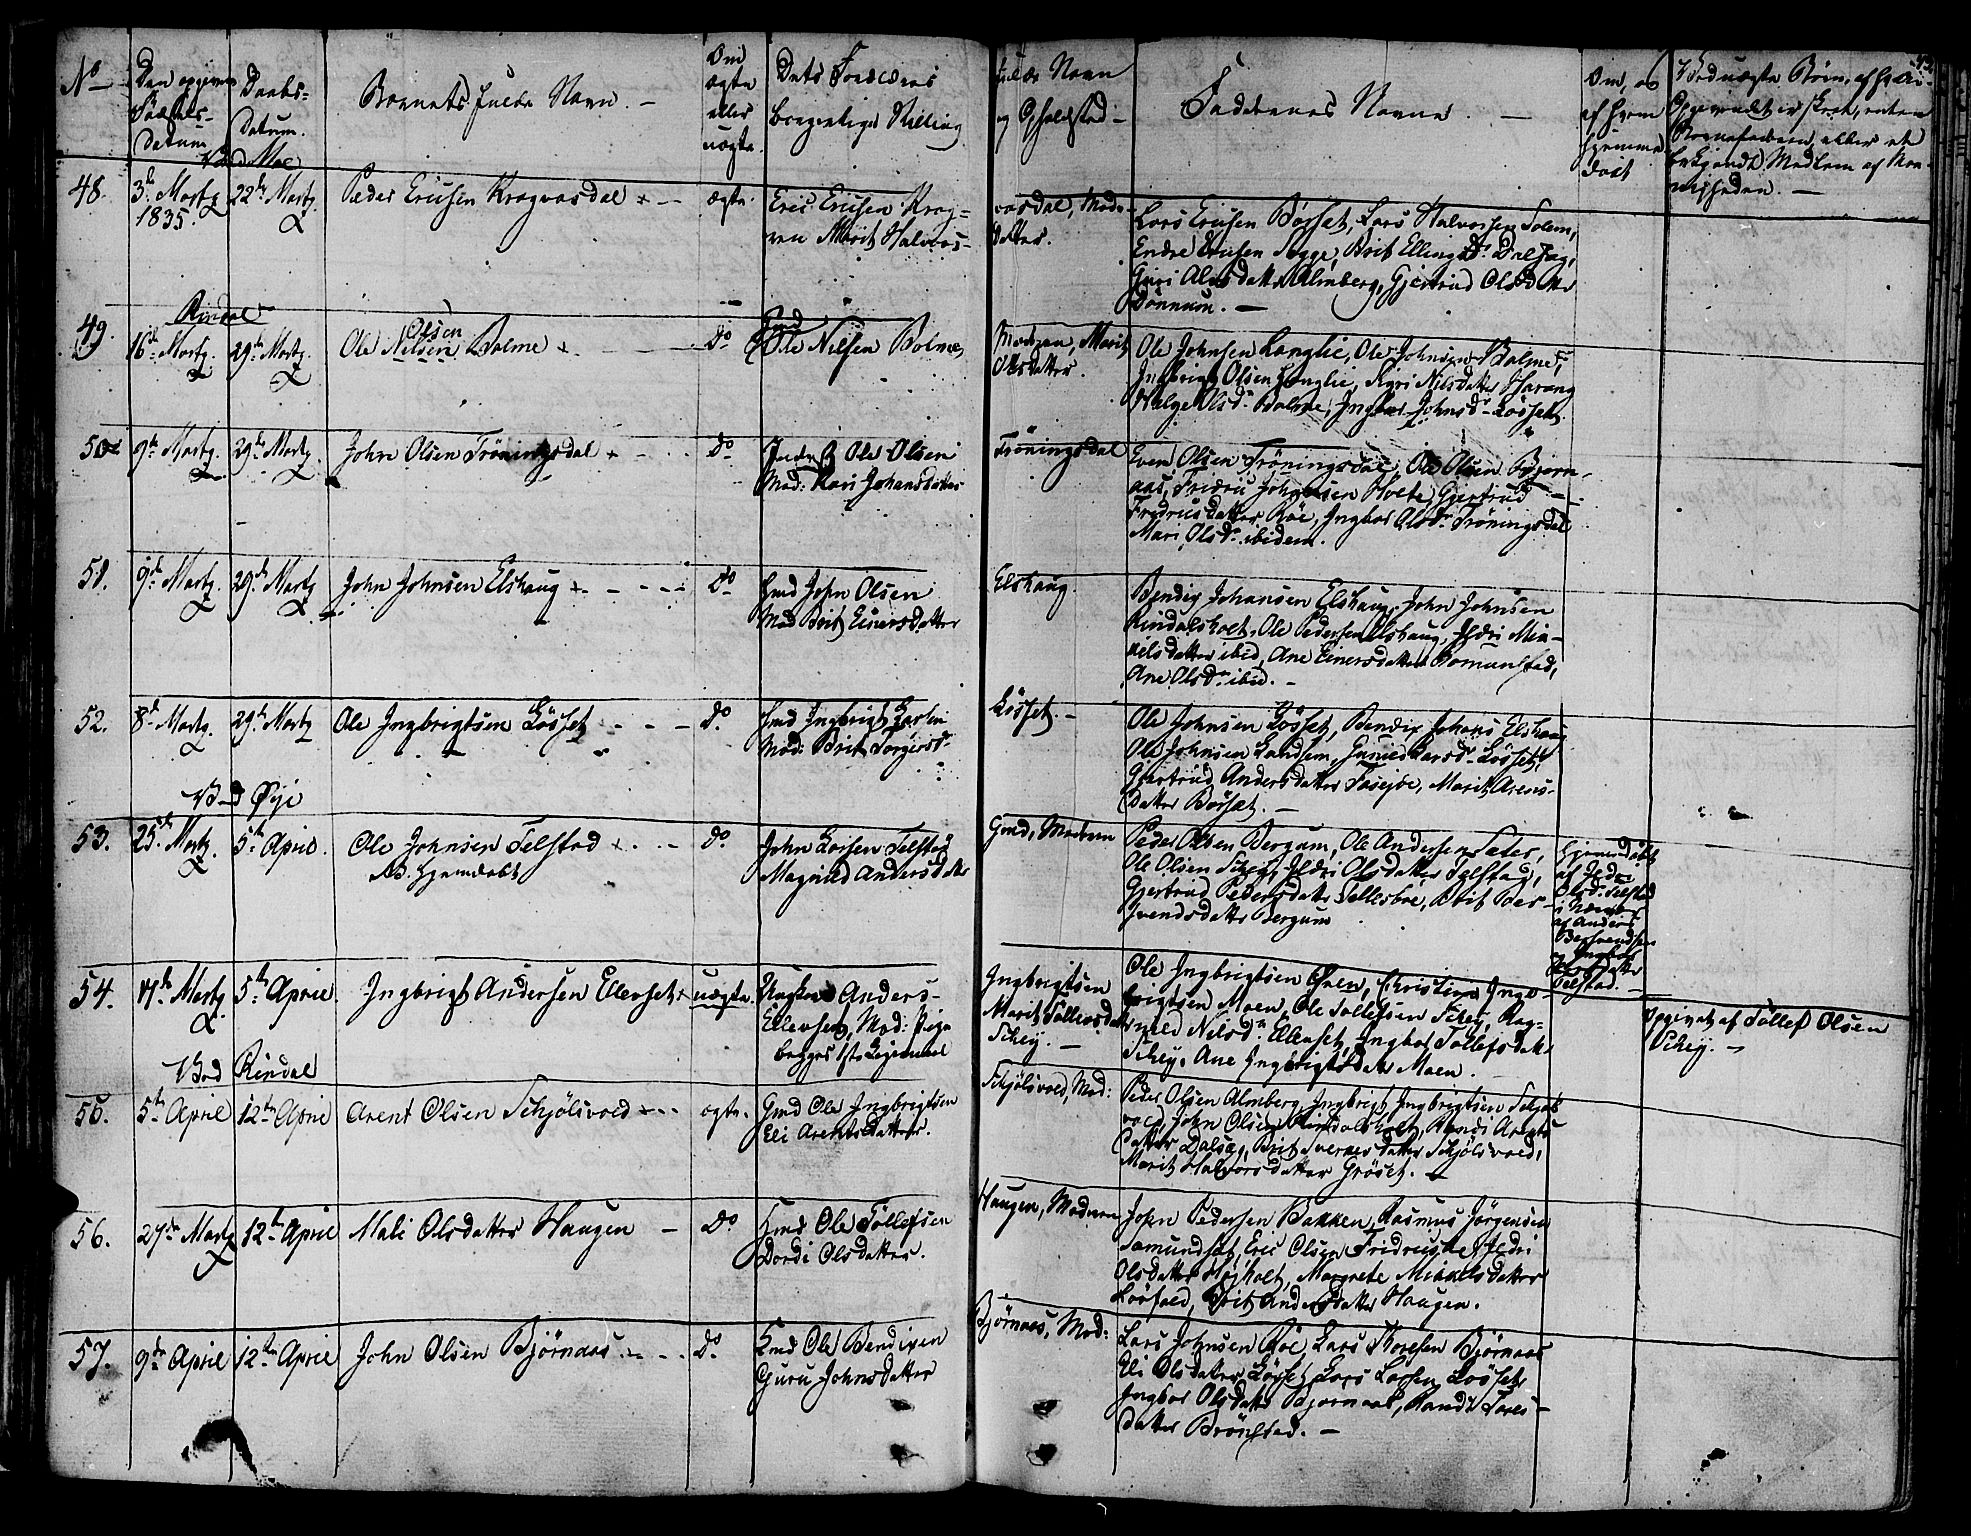 No
Den opgivne
Fødsels-
datum
Daabs-
Datum.
Barnets fulde Navn. —
Om
ægte
eller
uægte.
Dets Forældres
borgerlige Stilling
fulde Navn
og Opholdsted —
Faddernes Navne. —
Om, og
af hvem
hjemme
døbt
Ved uægte Børn, af hvem
Opgivende er skeet, enten
Barnefaderen, eller et
bekjendt Medlem af Me-
nigheden. —
Ved Moe
48.
3de Martz
1835.
22de Martz.
Peder Ericsen Kragnæsdal
ægte.
Eric Ericsen Krag=
Marit Halvors-
datter.
Lars Ericsen Børset, Lars Halvorsen Solem,
Endre Ericsen Sogge, Brit Ellings Dr. Dalseg,
Guri Alendsdatter Almberg, Gjertrud Olsdatter
Dønnum. —
Rindal
49.
16de Martz.
29de Martz.
Olsen
Ole Nilsen Bolme
Do
Gmd
Ole Nilsen Bolme,
Moderen, Marit
Olsdatter.
Ole Johnsen Langlie, Ole Johnsen Bolme,
Ingbrigt Olsen Langlie, Sigri Nilsdatter Harang
Helge Olsdr. Bolme, Ingbor Johnsdr. Løsset.
50
9de Martz.
29de Martz.
John Olsen Trøningsdal
Do
Inder. Ole Olsen
Mod: Kari Johansdatter
Trøningsdal
Even Olsen Trøningsdal, Ole Olsen Bjørn-
aas, Fredric Johansen Holte, Gjertrud
Fredricsdatter Røe, Ingbor Olsdr. Trøningsdal
Mari Olsdr. ibidem.
51.
9de Martz.
29de Martz
John Johnsen Elshaug
Do
Hmd John Olsen
Mod Brit Einersdatter
Elshaug.
Bendix Johansen Elshaug, John Johnsen
Rindalsholt, Ole Pedersen Elshaug, Ildri Mik-
kelsdatter ibid, Ane Einersdatter Romundstad,
Ane Olsdr. ibid. —
52.
8de Martz.
29de Martz
Ole Ingbrigtsen Løsset
Do
Hmd Ingbrigt Larsen
Mod: Brit Torgersdr.
Løsset. —
Ole Johnsen Løsset, Bendix Johans Elshaug
Ole Johnsen Landsem, Gunild Larsdr. Løsset,
Gjertrud Andersdatter Fosejde, Marit Arens-
datter Børset. —
Ved Øye
53.
25de Martz.
5te April.
Ole Johnsen Telstad
NB. Hjemdøbt
Do
John Larsen Telstad
Magnild Andersdatter
Gmd, Moderen
Peder Olsen Bergum, Ole Andersen Sæter,
Ole Olsen Schei, Ildri Olsdatter Telstad,
Gjertrud Pedersdatter Tellesbøe, Brit Ber-
svendsdatter Bergum
Hjemdøbt
af Ildri
Olsdr. Telstad
i Nærvær
af Anders
Bersvendsen
og Ingbor
Larsdatter
Telstad. —
54.
5te April
Ingbrigt Andersen Ellevset
uægte.
Ungkarl Anders-
Ellevset, Mod: Pige
begges 1ste Leiermaal
Ingbrigtsen
Marit Tøllefsdatter
Schey. —
Ole Ingbrigtsen Øren, Christian Inge-
brigtsen Moen, Ole Tøllefsen Schey, Rag-
nild Nilsdr. Ellevset, Ingbor Tøllefsdatter
Schey, Ane Ingbrigtsdatter Moen.
Opgivet af Tøllef Olsen
Schey. —
Ved Rindal
55.
5te April
12te April
Arent Olsen Schjølsvold
ægte.
Gmd Ole Ingbrigtsen
Eli Arentsdatter.
Schjølsvold, Mod:
Peder Olsen Almberg, Ingbrigt Ingbrigtsen Schjøls
vold, John Olsen Rindalsholt, Randi Arents
datter Dalseg, Brit Sversdatter Schjølsvold,
Marit Halvorsdatter Grøset. —
56.
27de Martz
12te April
Mali Olsdatter Haugen —
Do
Hmd Ole Tøllefsen
Dordi Olsdatter.
Haugen, Moderen
John Pedersen Bakken, Rasmus Jørgensen
Samundset, Eric Olsen Fredrichset, Ildri
Olsdatter Højholt, Margrete Mikkelsdatter
Brit Andersdatter Haugen.
57.
9de April
12te April
John Olsen Bjørnaas
Do.
Hmd Ole Bendixen
Guru Johnsdatter
Bjørnaas, Mod:
Lars Johnsen Røe, Lars Thoresen Bjørnaas
Eli Olsdatter Løsset, Lars Larsen Løsset,
Ingbor Olsdatter Bjørnaas, Randi Lars-
datter Brønstad. —